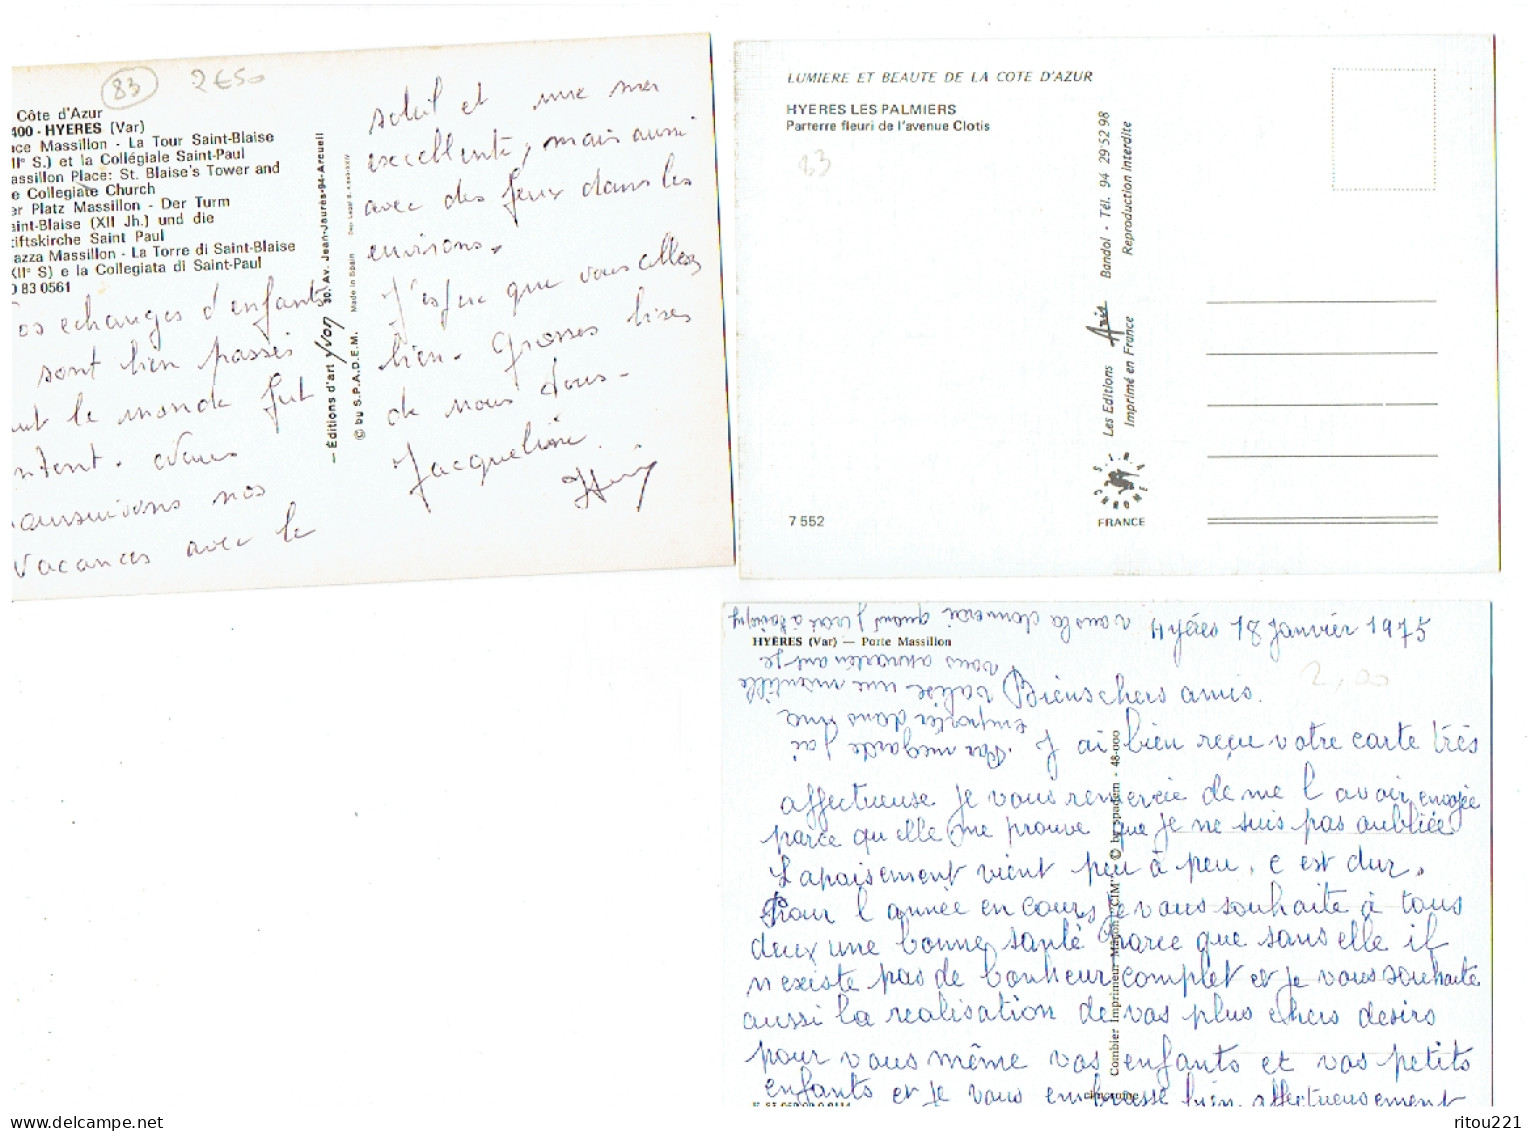 83 2€50
Côte d'Azur
400 - HYERES (Var)
ace Massillon - La Tour Saint-Blaise
II° S.) et la Collégiale Saint-Paul
assillon Place: St. Blaise's Tower and
e Collegiate Church
er Platz Massillon - Der Turm
aint-Blaise (XII Jh.) und die
tiftskirche Saint Paul
iazza Massillon - La Torre di Saint-Blaise
XII° S) e la Collegiata di Saint-Paul
0 83 0561
os echanges d'enfants
sont bien passés
ut le monde fut
ntent. Nous
oursuivons nos
vacances avec le
- Éditions d'art yvon 30, Av. Jean-Jaurès-94-Arcueil
© by S.P.A.D.E.M. Made in Spain
soleil et une mer
excellente, mais aussi
avec des feux dans les
environs.
J'espère que vous allez
bien. Grosses bises
de nous dous-
Jacqueline
LUMIERE ET BEAUTE DE LA COTE D'AZUR
HYERES LES PALMIERS
Parterre fleuri de l'avenue Clotis
83
7 552
Les Editions Aris Bandol - Tél. 94 29 52 98
Imprimé en France Reproduction interdite
S.I.R.A. CHROME
FRANCE
HYÈRES (Var) — Porte Massillon
Hyéres 18 Janvier 1975
2,00
Par megarde j'ai
emporter dans ma
valise une
vous appartenant je
vous la donnerai quand j irai à
Biens chers amis.
J ai bien reçu votre carte très
affectueuse je vous remercie de me l avoir envoyée
parce qu elle me prouve que je ne suis pas oubliée
L apaisement vient peu à peu, c est dur.
Pour l année en cours je vous souhaite à tous
deux une bonne santé parce que sans elle il
n existe pas de bonheur complet et je vous souhaite
aussi la realisation de vos plus chers desirs
pour vous même vos enfants et vos petits
enfants et je vous embrasse bien affectueusement
Combier Imprimeur Macon "CIM" © by spadem - 48-000
cimcrome
ritou221